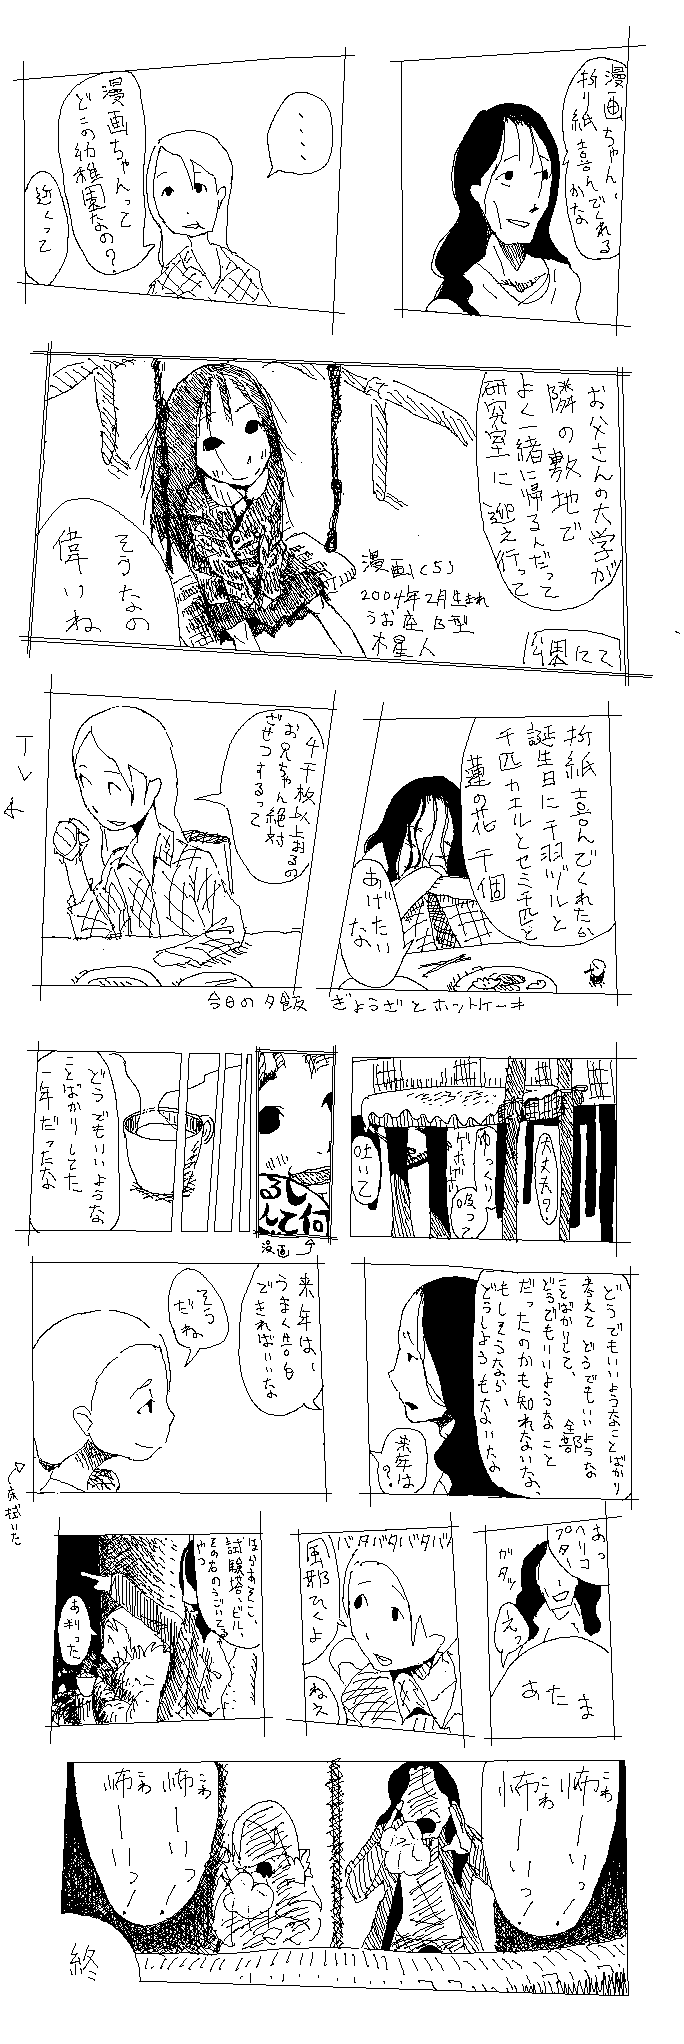 漫画ちゃん、
折り紙喜んでくれる
かな
････
漫画ちゃんって
どこの幼稚園なの?
近くって
お父さんの大学が
隣の敷地で
よく一緒に帰るんだって
研究室に迎え行って
漫画(5)
2004年2月生まれ
うお座 B型
木星人
公園にて
そうなの
偉いね
折紙喜んでくれたから
誕生日に千羽ヅルと
千匹カエルとセミ千匹と
蓮の花 千個
あげたい
な
4千枚以上おるの
お兄ちゃん絶対
ざせつするって
TV
今日の夕飯 ぎょうざとホットケーキ
大丈夫?
ゆっくり
ゲホゲホ
吸って
吐いて
漫画
どうでもいいような
ことばかりしてた
一年だったな
どうでもいいようなことばかり
考えて どうでもいいような
ことばかりして、全部
どうでもいいようなこと
だったのかも知れないな、
もしそうなら、
どうしようもないな
来年は
?
来年は、
うまく告白
できればいいな
そう
だね
床拭いた
あっ
ヘリコ
プター
ガタッ
えっ
あたま
バタバタバタバタバ
風邪ひくよ
ねえ
試験塔、ビル、
その右のうごいてる
やつ
あ判った
怖ーいっ!
こわ
怖ーいっ!
こわ
怖ーいっ!
こわ
怖ーいっ!
こわ
終